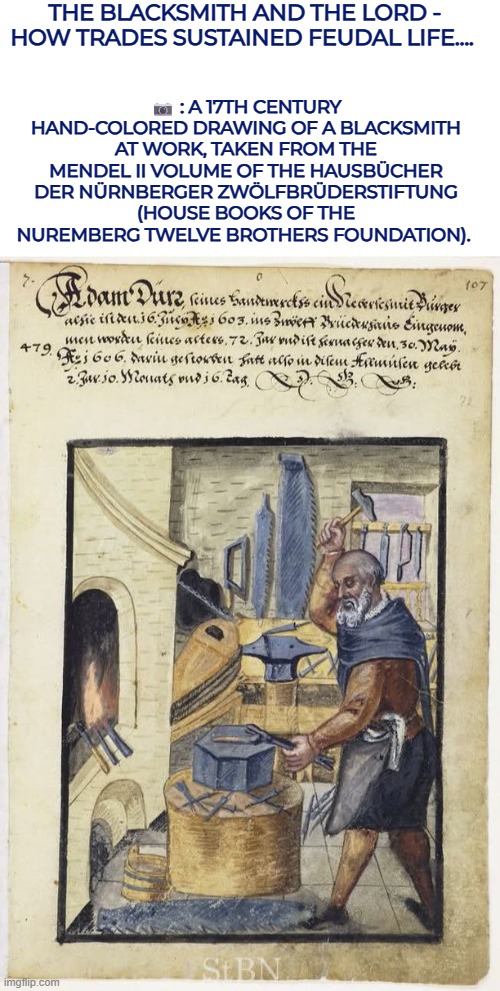 THE BLACKSMITH AND THE LORD -
HOW TRADES SUSTAINED FEUDAL LIFE....
📷 : A 17TH CENTURY
HAND-COLORED DRAWING OF A BLACKSMITH
AT WORK, TAKEN FROM THE
MENDEL II VOLUME OF THE HAUSBÜCHER
DER NÜRNBERGER ZWÖLFBRÜDERSTIFTUNG
(HOUSE BOOKS OF THE
NUREMBERG TWELVE BROTHERS FOUNDATION).
7. 107
Adam Dürz seines Handtwercks ein Neberschmit Burger
alhie ist den 16. 1603. ins zwölff Brüederhaus Eingenom,
men worden seines alters. 72. Jar und ist hernacher den. 30. May.
479. 1606. darin gestorben hatt also in disem Allmusen gelebt
2. Jar. 10. Monats vnd 16. Tag.
72
StBN
imgflip.com